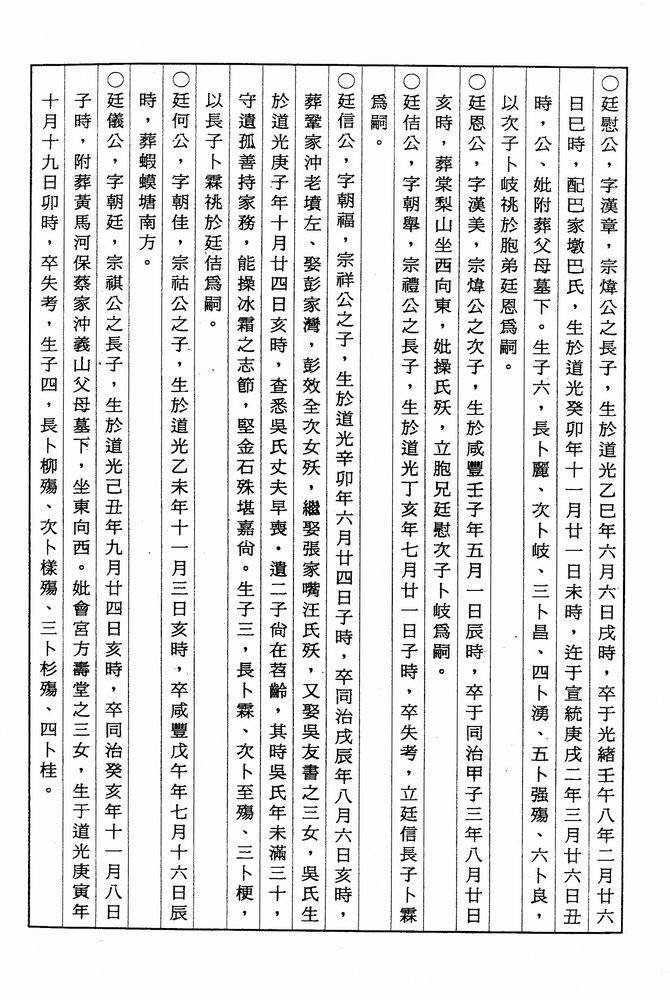 ○廷慰公，字漢章，宗煒公之長子，生於道光乙巳年六月六日戌時，卒于光緒壬午八年二月廿六
日巳時，配巴家墩巴氏，生於道光癸卯年十一月廿一日未時，迕于宣統庚戌二年三月廿六日丑
時，公、妣附葬父母墓下。生子六，長卜麗、次卜岐、三卜昌、四卜湧、五卜强殤、六卜良，
以次子卜岐祧於胞弟廷恩爲嗣。
○廷恩公，字漢美，宗煒公之次子，生於咸豐壬子年五月一日辰時，卒于同治甲子三年八月廿日
亥時，葬棠梨山坐西向東，妣操氏殀，立胞兄廷慰次子卜岐爲嗣。
○廷佶公，字朝舉，宗禮公之長子，生於道光丁亥年七月廿一日子時，卒失考，立廷信長子卜霖
爲嗣。
○廷信公，字朝福，宗祥公之子，生於道光辛卯年六月廿四日子時，卒同治戌辰年八月六日亥時，
葬鞏家沖老墳左、娶彭家灣，彭效全次女殀，繼娶張家嘴汪氏殀，又娶吳友書之三女，吳氏生
於道光庚子年十月廿四日亥時，查悉吳氏丈夫早喪．遺二子尙在苕齡，其時吳氏年未滿三十，
守遺孤善持家務，能操冰霜之志節，堅金石殊堪嘉尙。生子三，長卜霖、次卜至殤、三卜梗，
以長子卜霖祧於廷佶爲嗣。
○廷何公，字朝佳，宗祜公之子，生於道光乙未年十一月三日亥時，卒咸豐戊午年七月十六日辰
時，葬蝦蟆塘南方。
○廷儀公，字朝廷，宗祺公之長子，生於道光己丑年九月廿四日亥時，卒同治癸亥年十一月八日
子時，附葬黃馬河保蔡家沖義山父母墓下，坐東向西。妣會宮方壽堂之三女，生于道光庚寅年
十月十九日卯時，卒失考，生子四，長卜柳殤、次卜樣殤、三卜杉殤、四卜桂。